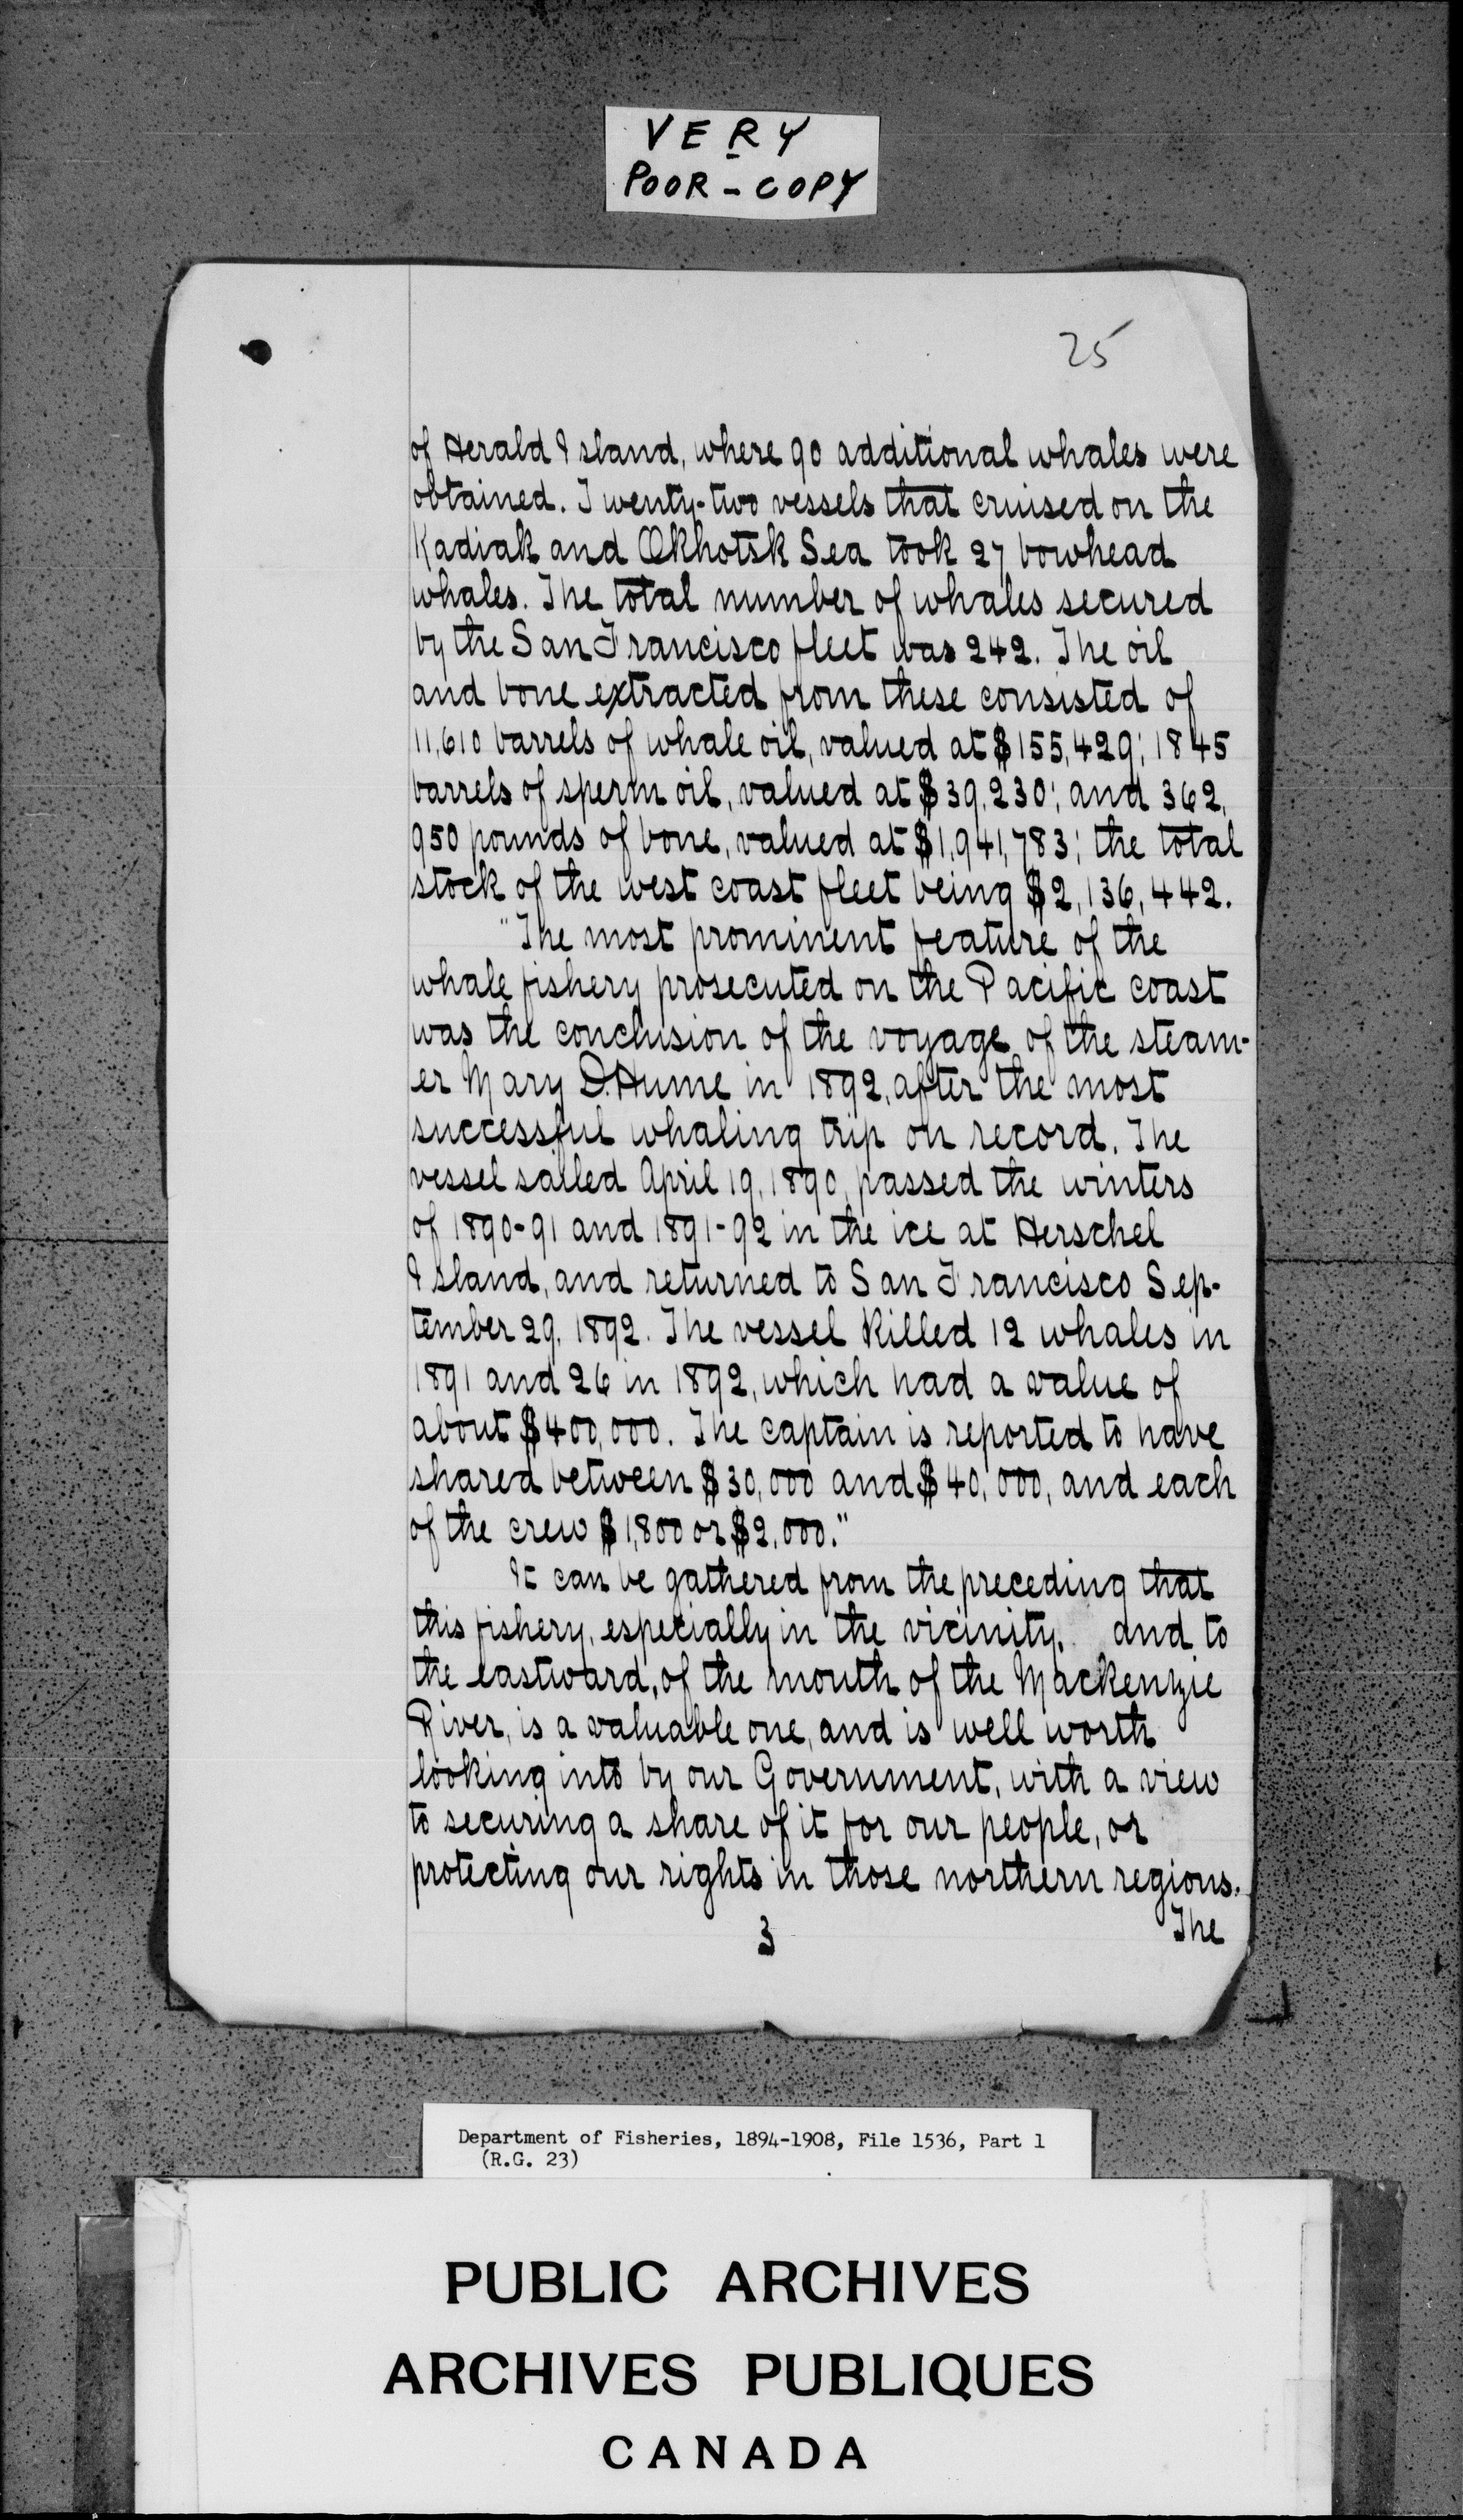 VERY
POOR - COPY
25
of Herald Island, where 90 additional whales were
obtained. Twenty-two vessels that cruised on the
Kadiak and Okhotsk Sea took 27 bowhead
whales. The total number of whales secured
by the San Francisco fleet was 242. The oil
and bone extracted from these consisted of
11,610 barrels of whale oil, valued at $155,429; 1845
barrels of sperm oil, valued at $39,230; and 362,
950 pounds of bone, valued at $1,941,783; the total
stock of the west coast fleet being $2,136,442.
"The most prominent feature of the
whale fishery prosecuted on the Pacific coast
was the conclusion of the voyage of the steam-
er Mary D. Hume in 1892, after the most
successful whaling trip on record. The
vessel sailed April 19, 1890, passed the winters
of 1890-91 and 1891-92 in the ice at Herschel
Island, and returned to San Francisco Sep-
tember 29, 1892. The vessel killed 12 whales in
1891 and 26 in 1892, which had a value of
about $400,000. The captain is reported to have
shared between $30,000 and $40,000, and each
of the crew $1,800 or $2,000."
It can be gathered from the preceding that
this fishery, especially in the vicinity, and to
the eastward, of the mouth of the Mackenzie
River, is a valuable one, and is well worth
looking into by our Government, with a view
to securing a share of it for our people, or
protecting our rights in those northern regions.
3 The
Department of Fisheries, 1894-1908, File 1536, Part 1
(R.G. 23)
PUBLIC ARCHIVES
ARCHIVES PUBLIQUES
CANADA